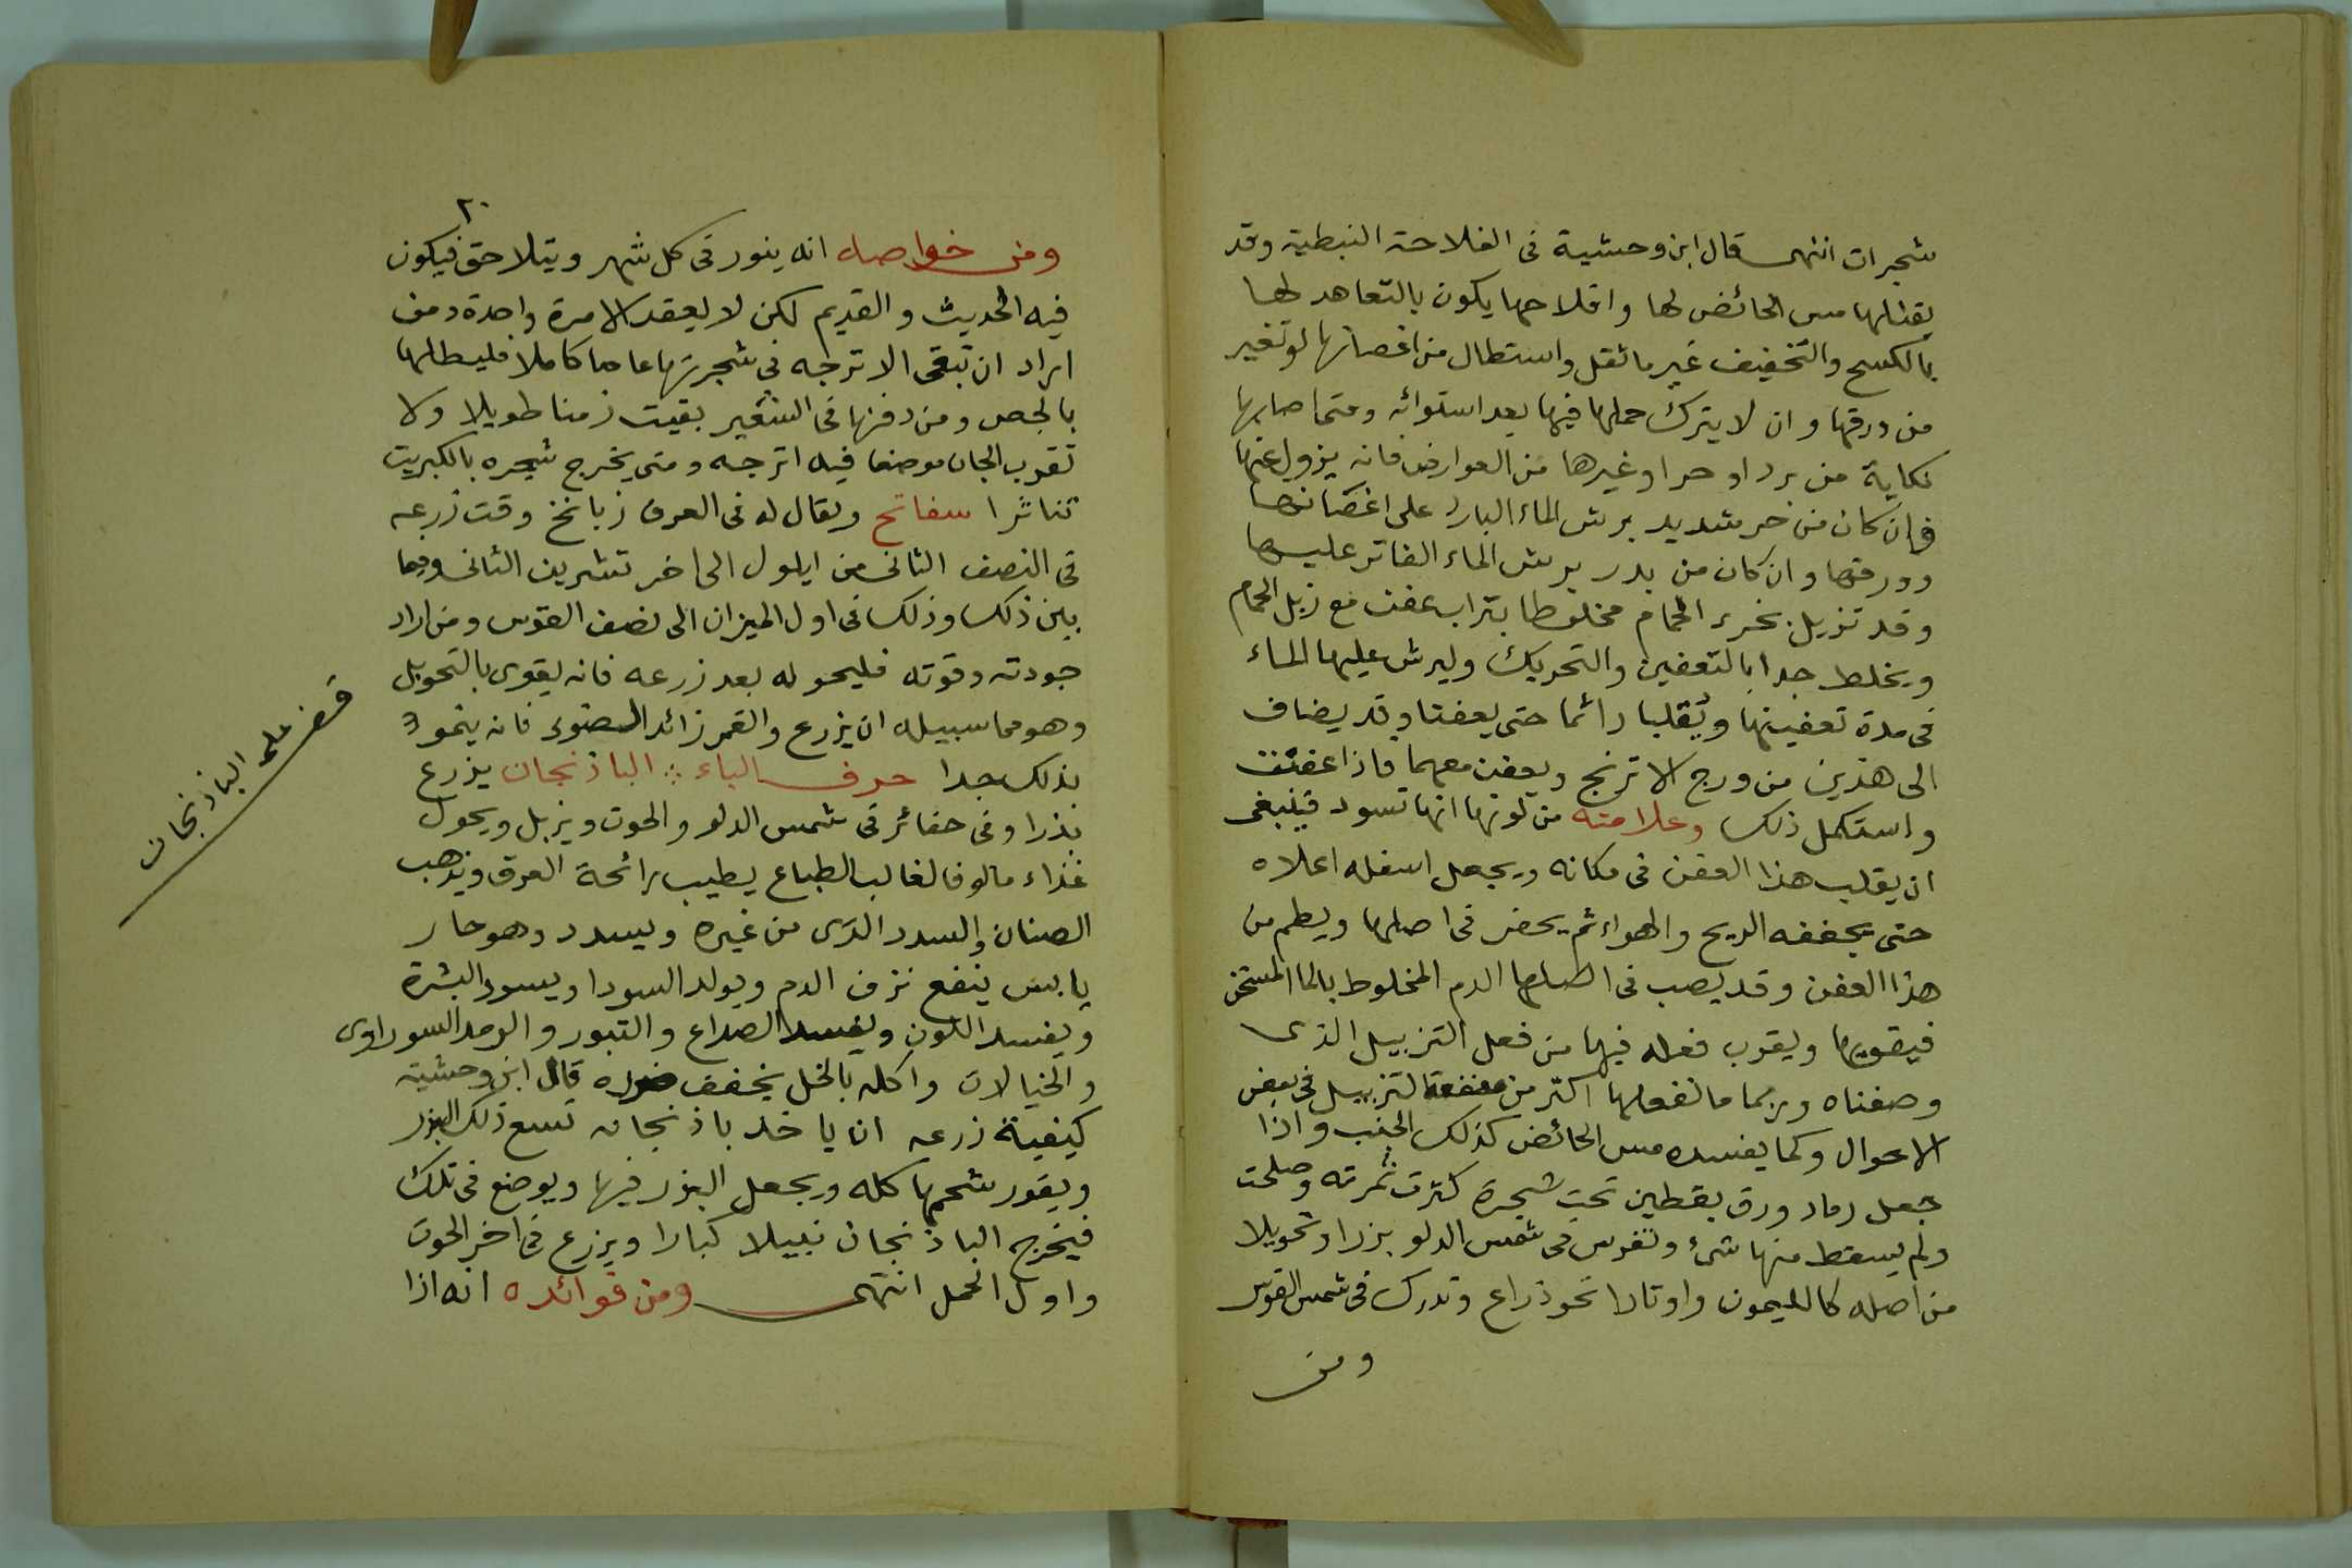 شجرات انتهى قال ابن وحشية فى الفلاحة النبطية وقد
يقتلها مس الحائض لها وافلاحها يكون بالتعاهد لها
بالكسح والتخفيف غير ما ثقل واستطال من اغصانها او تغير
من ورقها وان لا يترك حملها فيها بعد استوائه ومتى اصابها
نكاية من برد او حر او غيرها من العوارض فانه يزول عنها
فان كان من حر شديد برش الماء البارد على اغصانها
وورقها وان كان من برد برش الماء الفاتر عليها
وقد تزبل بخرء الحمام مخلوطا بتراب عفن مع زبل الحمام
ويخلط جدا بالتعفين والتحريك وليرش عليها الماء
فى مدة تعفينها ويقلبا دائما حتى يعفنا وقد يضاف
الى هذين من ورج الاترنج ويعفن معهما فاذا عفنت
واستكمل ذلك وعلامته من لونها انها تسود فينبغى
ان يقلب هذا العفن فى مكانه ويجعل اسفله اعلاه
حتى يجففه الريح والهواء ثم يحفر فى اصلها ويطم من
هذا العفن وقد يصب فى اصلها الدم المخلوط بالما المسخن
فيقويها ويقرب فعله فيها من فعل التزبيل الذى
وصفناه وربما ما نفعلها اكثر من منفعة التزبيل فى بعض
الاحوال وكما يفسده مس الحائض كذلك الجنب واذا
جعل رماد ورق يقطين تحت شجرة كثرت ثمرته وصلحت
ولم يسقط منها شئ وتغرس فى شمس الدلو بزرا وتحويلا
من اصله كالليمون واوتادا نحو ذراع وتدرك فى شمس القوس
ومن
٢٠
ومن خواصه انه ينور فى كل شهر ويتلاحق فيكون
فيه الحديث والقديم لكن لا يعقد الامرة واحدة ومن
اراد ان تبقى الاترجه فى شجرتها عاما كاملا فليطلها
بالجص ومن دفنها فى الشعير بقيت زمنا طويلا ولا
تقرب الجان موضعا فيه اترجه ومتى يخرج شجره بالكبريت
تناثرا سفاتح ويقال له فى العرف زبانخ وقت زرعه
فى النصف الثانى من ايلول الى اخر تشرين الثانى وفيما
بين ذلك وذلك فى اول الميزان الى نصف القوس ومن اراد
جودته وقوته فليحوله بعد زرعه فانه يقوى بالتحويل
وهو مما سبيله ان يزرع والقمر زائد الضوء فانه ينمو
بذلك جدا حرف الباء الباذنجان يزرع
بذرا وفى حفائر فى شمس الدلو والحوت ويزبل ويحول
غذاء مالوفا لغالب الطباع يطيب رائحة العرق ويذهب
الصنان والسدد الذى من غيره ويسدد وهو حار
يابس ينفع نزف الدم ويولد السودا ويسود البشرة
ويفسد اللون ويفسد الصداع والتبور والرمد السوداوى
والخيالات واكله بالخل يخفف ضرره قال ابن وحشية
كيفية زرعه ان ياخذ باذنجانه تسع ذلك البزر
ويقور شحمها كله ويجعل البزر فيها ويوضع فى تلك
فيخرج الباذنجان نبيلا كبارا ويزرع فى اخر الحوت
واول الحمل انتهى ومن فوائده انه اذا
قف على الباذنجان